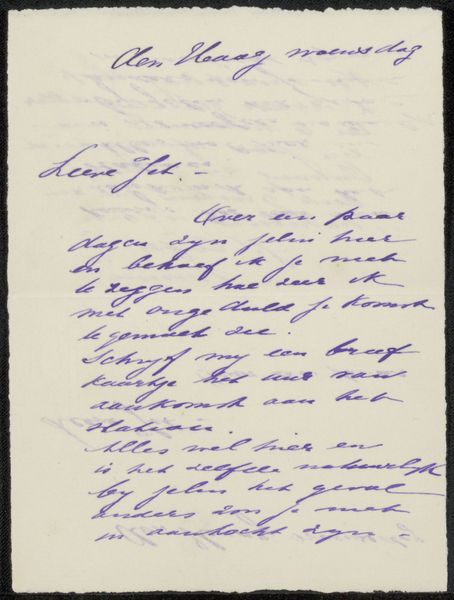 den Haag woensdag
Lieve Jet. –
Over een paar
dagen zijn jelui hier
en behoef ik je niet
te zeggen hoe zeer ik
met ongeduld je komst
te gemoet zie.
Schrijf mij een brief
kaartje het uur van
aankomst aan het
station.
Alles wel hier en
is het zelfde natuurlijk
bij jelui het geval
anders zou je niet
in aantocht zijn –